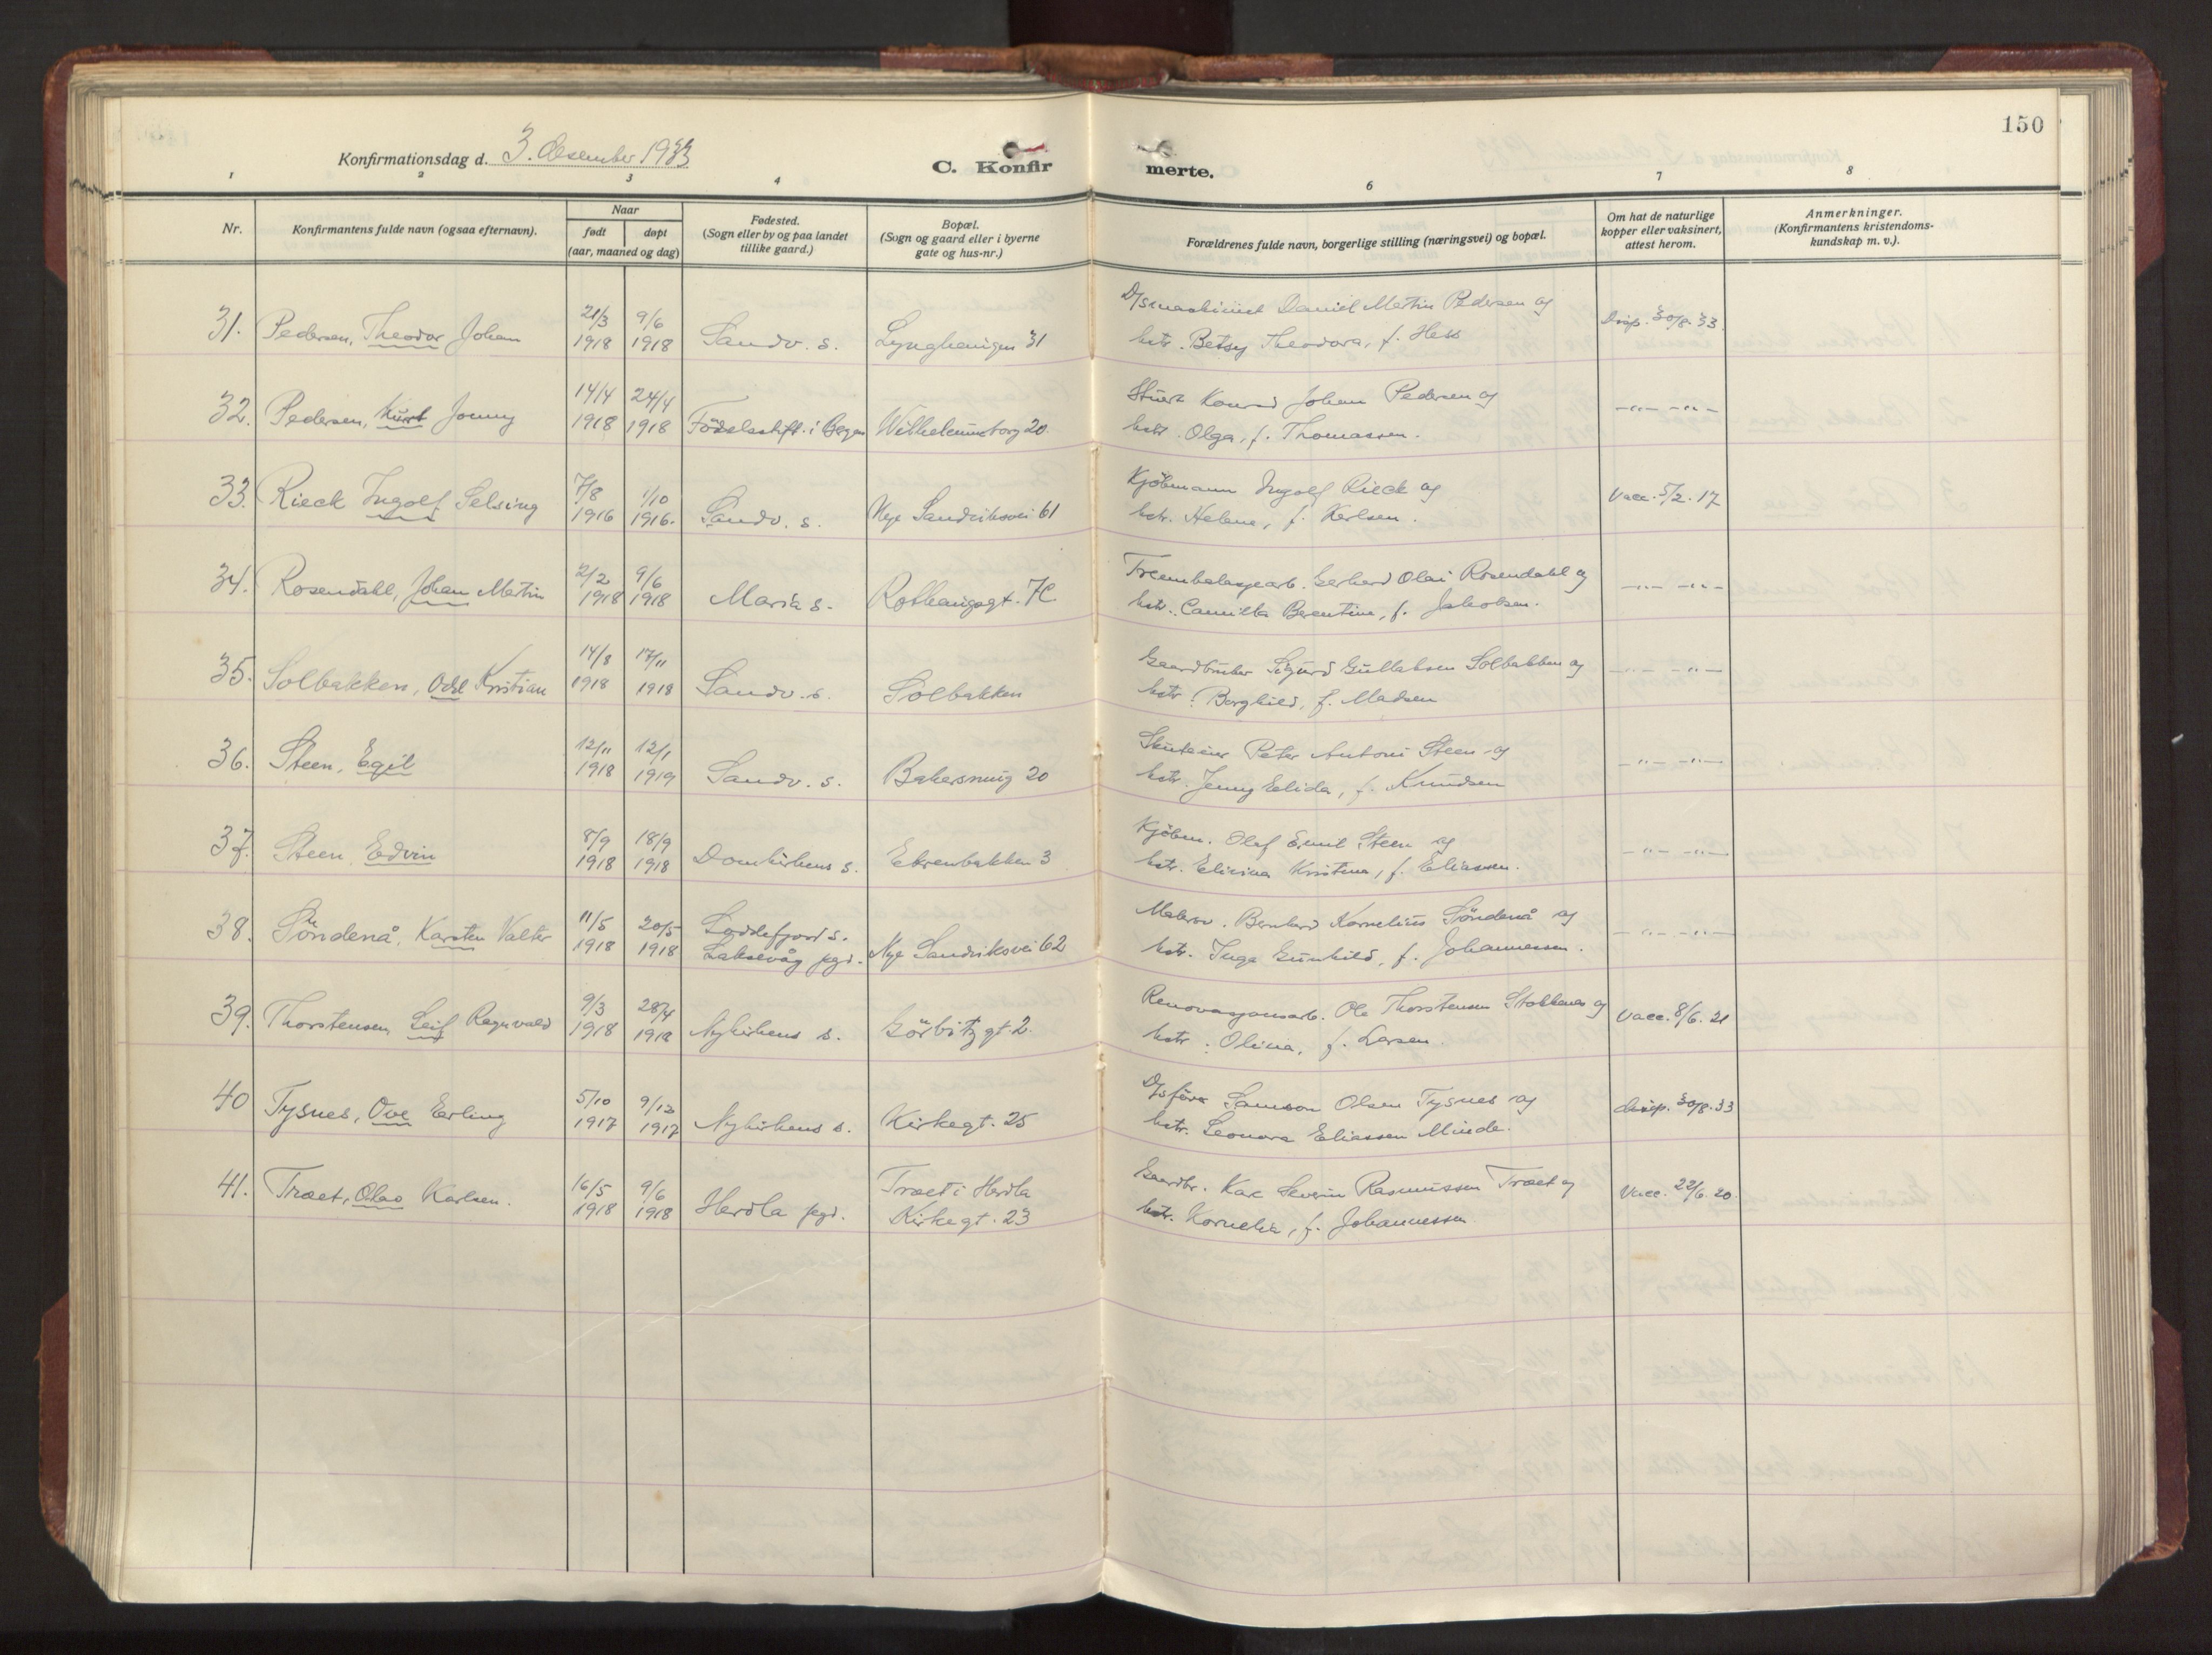 150
Konfirmationsdag d. 3. desember 1933
C. Konfirmerte.
1 2 3 4 5 6 7 8
Nr.
Konfirmantens fulde navn (ogsaa efternavn).
Naar
født døpt
(aar, maaned og dag)
Fødested.
(Sogn eller by og paa landet
tillike gaard.)
Bopæl.
(Sogn og gaard eller i byerne
gate og hus-nr.)
Forældrenes fulde navn, borgerlige stilling (næringsvei) og bopæl.
Om hat de naturlige
kopper eller vaksinert,
attest herom.
Anmerkninger.
(Konfirmantens kristendoms-
kundskap m. v.).
31. Pedersen, Theodor Johan 21/3 1918 9/6 1918 Sandv. s. Lynghaugen 31
D/smaskinist Daniel Martin Pedersen og
hstr. Betsy Theodora, f. Hess
Disp. 30/8. 33.
32. Pedersen, Kurt Jonny 14/4 1918 24/4 1918 Födselsstift. i Bergen Wilhelmineborg 20.
Stuert Konrad Johan Pedersen og
hstr. Olga, f. Thomassen.
—"— —"—
33. Rieck Ingolf Selsing 7/8 1916 1/10 1916. Sandv. s. Nye Sandviksvei 61
Kjöbmann Ingolf Rieck og
hstr. Helene, f. Karlsen.
Vacc. 5/2. 17
34. Rosendahl, Johan Martin 2/2 1918 9/6 1918 Maria s. Rothaugsgt. 7c
Treemballasjearb. Gerhard Olai Rosendahl og
hstr. Camilla Berentine, f. Jakobsen.
—"— —"—
35. Solbakken, Odd Kristian 14/8 1918 17/11 1918 Sandv. s. Solbakken
Gaardbruker Sigurd Gullaksen Solbakken og
hstr. Borghild, f. Madsen
—"— —"—
36. Steen, Egil 12/11 1918 12/1 1919 Sandv. s. Bakersmug 20
Peter Antoni Steen og
hstr. Jenny Elida, f. Knudsen
—"— —"—
37. Steen, Edvin 8/9 1918 18/9 1918 Domkirkens s. Ekrenbakken 3
Kjöbm. Olaf Emil Steen og
hstr. Kristina, f. Eliassen.
—"— —"—
38. Söndenå, Karsten Valter 11/5 1918 20/5 1918 Loddefjord s.
Laksevåg pgd. Nye Sandviksvei 62
Malersv. Bernhard Kornelius Söndenå og
hstr. Inga Gunhild, f. Johannessen.
—"— —"—
39. Thorstensen, Leif Ragnvald 9/3 1918 28/4 1918 Nykirkens s. Görbitzgt. 2.
Renovasjonsarb. Ole Thorstensen Stokkenes og
hstr. Olina, f. Larsen.
Vacc. 8/6. 21
40 Tysnes, Ove Erling 5/10 1917 9/12 1917 Nykirkens s. Kirkegt. 25
D/sförer Samson Olsen Tysnes og
hstr. Leonora Eliassen Minde.
disp. 30/8. 33
41. Træet, Olav Karlsen. 16/5 1918 9/6 1918 Herdla pgd. Træet i Herdla
Kirkegt. 23
Gaardbr. Karl Severin Rasmussen Træet og
hstr. Kornelia, f. Johannessen
Vacc. 22/6. 20.